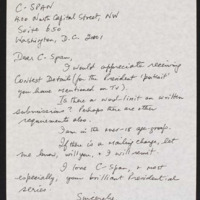 C-SPAN
400 North Capitol Street, NW
Suite 650
Washington, D.C. 20001
Dear C-Span,
I would appreciate receiving
Contest Details (for the President "portrait"
you have mentioned on TV).
Is there a word-limit on written
submissions? Perhaps there are other
requirements also.
I am in the over-18 age-group.
If there is a mailing charge, let
me know, will you, & I will remit.
I love C-Span, & most
especially, your brilliant Presidential
series
Sincerely